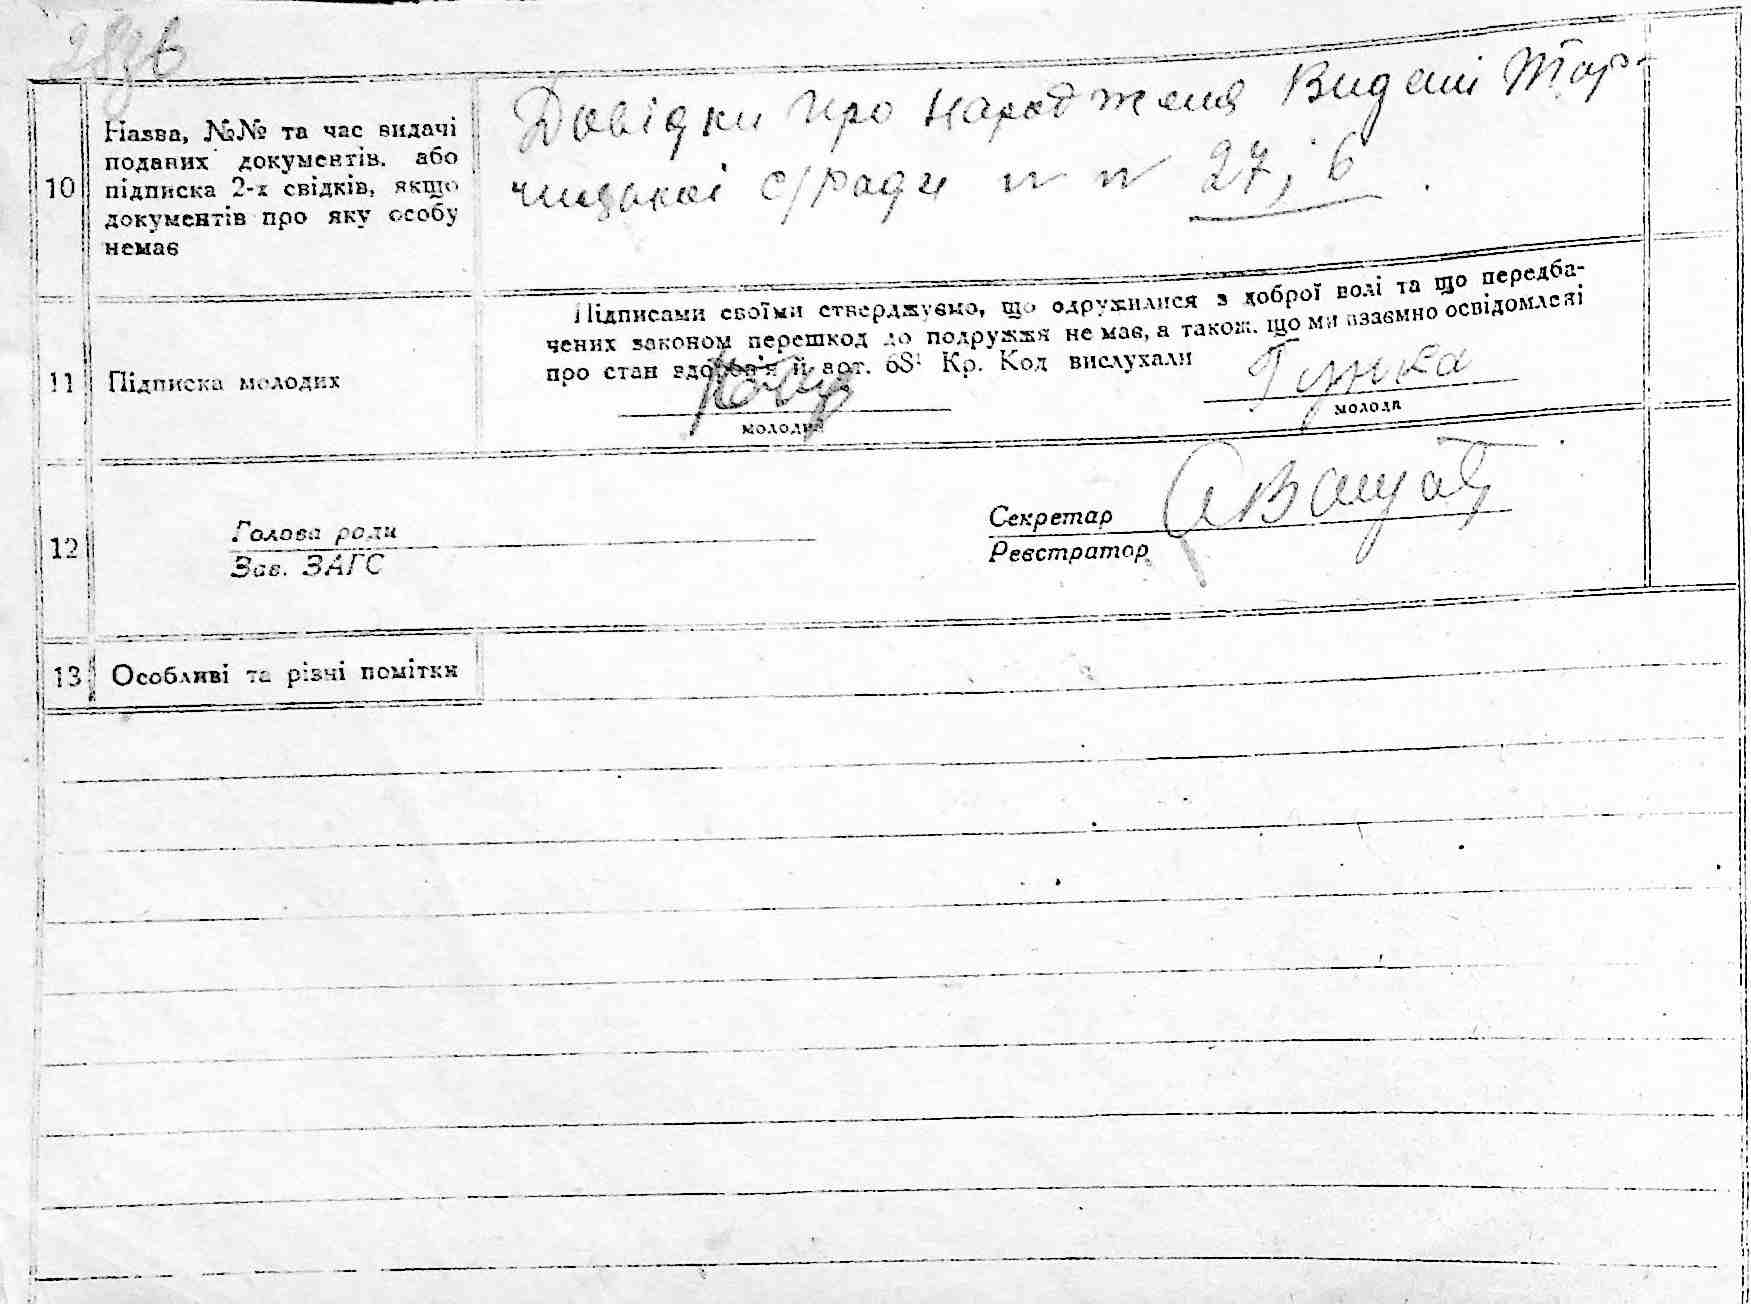 10
Назва, №№ та час видачі
поданих документів, або
підписка 2-х свідків, якщо
документів про яку особу
немає
Довідки про народження Видані Тор-
чицької с/ради 27, 6
11
Підписка молодих
Підписами своїми стверджуємо, що одружилися з доброї волі та що передба-
чених законом перешкод до подружжя не має, а також, що ми взаємно освідомлені
про стан здоров'я й арт. 68¹ Кр. Код вислухали
Гунька
молодий
молода
12
Голова ради
Зав. ЗАГС
Секретар
Реєстратор
13
Особливі та різні помітки